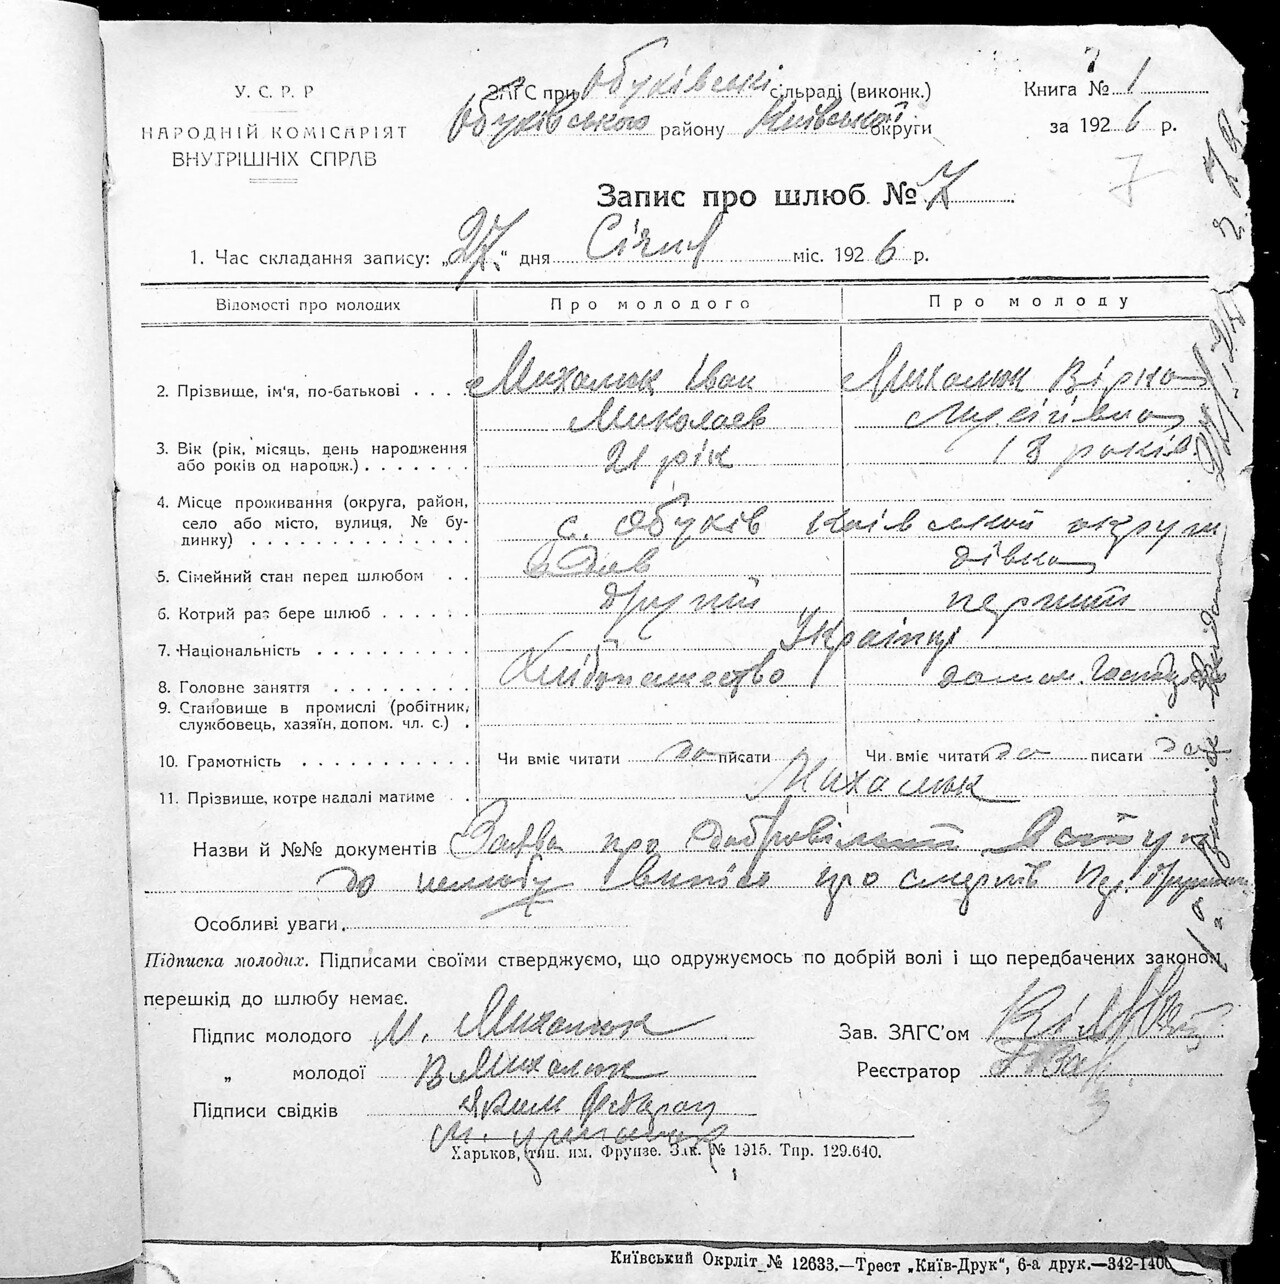 У. С. Р. Р
НАРОДНІЙ КОМІСАРІЯТ
ВНУТРІШНІХ СПРАВ
ЗАГС при Обуківські сільраді (виконк.)
Обуківського району Київської округи
Книга № 1
за 1926 р.
7
Запис про шлюб. № 7
1. Час складання запису: „27“ дня Січня міс. 1926 р.
Відомості про молодих Про молодого Про молоду
2. Прізвище, ім'я, по-батькові Михалюк Іван Миколаєв Михалюк Вірка Мусіївна
3. Вік (рік, місяць, день народження
або років од народж.) 21 рік 18 років
4. Місце проживання (округа, район,
село або місто, вулиця, № бу-
динку) с. Обуків Київської округи
5. Сімейний стан перед шлюбом вдов дівка
6. Котрий раз бере шлюб другий перший
7. Національність Українці
8. Головне заняття Хлібопашество домаш.
9. Становище в промислі (робітник,
службовець, хазяїн, допом. чл. с.)
10. Грамотність Чи вміє читати да писати Чи вміє читати да писати да
11. Прізвище, котре надалі матиме Михалюк
Назви й №№ документів Заява про добровільний вступ
до шлюбу випис про смерть
Особливі уваги
Підписка молодих. Підписами своїми стверджуємо, що одружуємось по добрій волі і що передбачених законом
перешкід до шлюбу немає.
Підпис молодого И. Михалюк
„ молодої В Михалюк
Підписи свідків Яким
Зав. ЗАГС'ом
Реєстратор
Харьков, тип. им. Фрунзе. Зак. № 1915. Тир. 129.640.
Київський Окрліт № 12633.—Трест „Київ-Друк“, 6-а друк.—342-1400